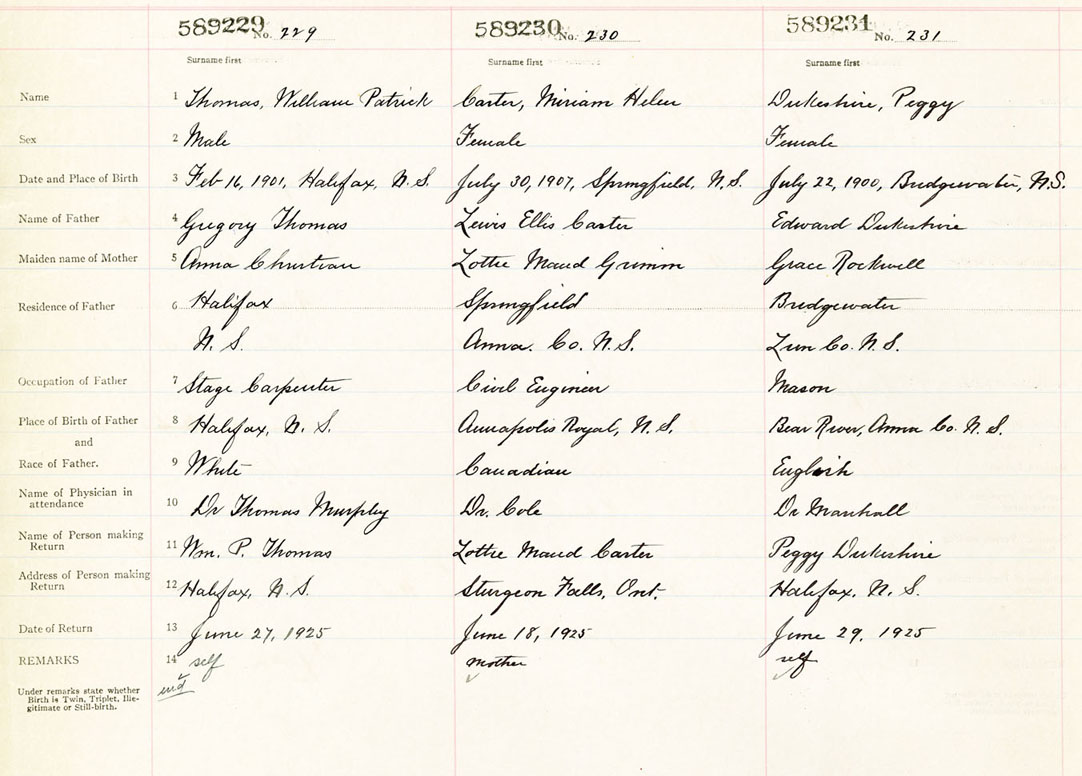 589229 No. 229 589230 No. 230 589231 No. 231
Surname first Surname first Surname first
Name 1 Thomas, William Patrick Carter, Miriam Helen Dukeshire, Peggy
Sex 2 Male Female Female
Date and Place of Birth 3 Feb 16, 1901, Halifax, N.S. July 30, 1907, Springfield, N.S. July 22, 1900, Bridgewater, N.S.
Name of Father 4 Gregory Thomas Lewis Ellis Carter Edward Dukeshire
Maiden name of Mother 5 Anna Christian Lottie Maud Grimm Grace Rockwell
Residence of Father 6 Halifax Springfield Bridgewater
N. S. Anna. Co. N.S. Lun Co. N.S.
Occupation of Father 7 Stage Carpenter Civil Engineer Mason
Place of Birth of Father 8 Halifax, N. S. Annapolis Royal, N.S. Bear River, Anna Co. N.S.
and
Race of Father. 9 White Canadian English
Name of Physician in
attendance 10 Dr Thomas Murphy Dr. Cole Dr Marshall
Name of Person making
Return 11 Wm. P. Thomas Lottie Maud Carter Peggy Dukeshire
Address of Person making
Return 12 Halifax, N.S. Sturgeon Falls, Ont. Halifax, N.S.
Date of Return 13 June 27, 1925 June 18, 1925 June 29, 1925
REMARKS 14 self mother self
Under remarks state whether
Birth is Twin, Triplet, Ille-
gitimate or Still-birth.